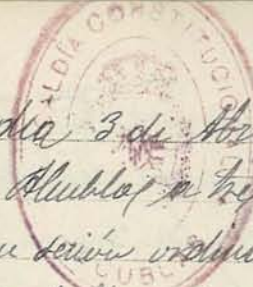 ALDÍA CONSTITUCIO
dia 3 de Abr
Alublas a tre
sesión ordin
CUBL